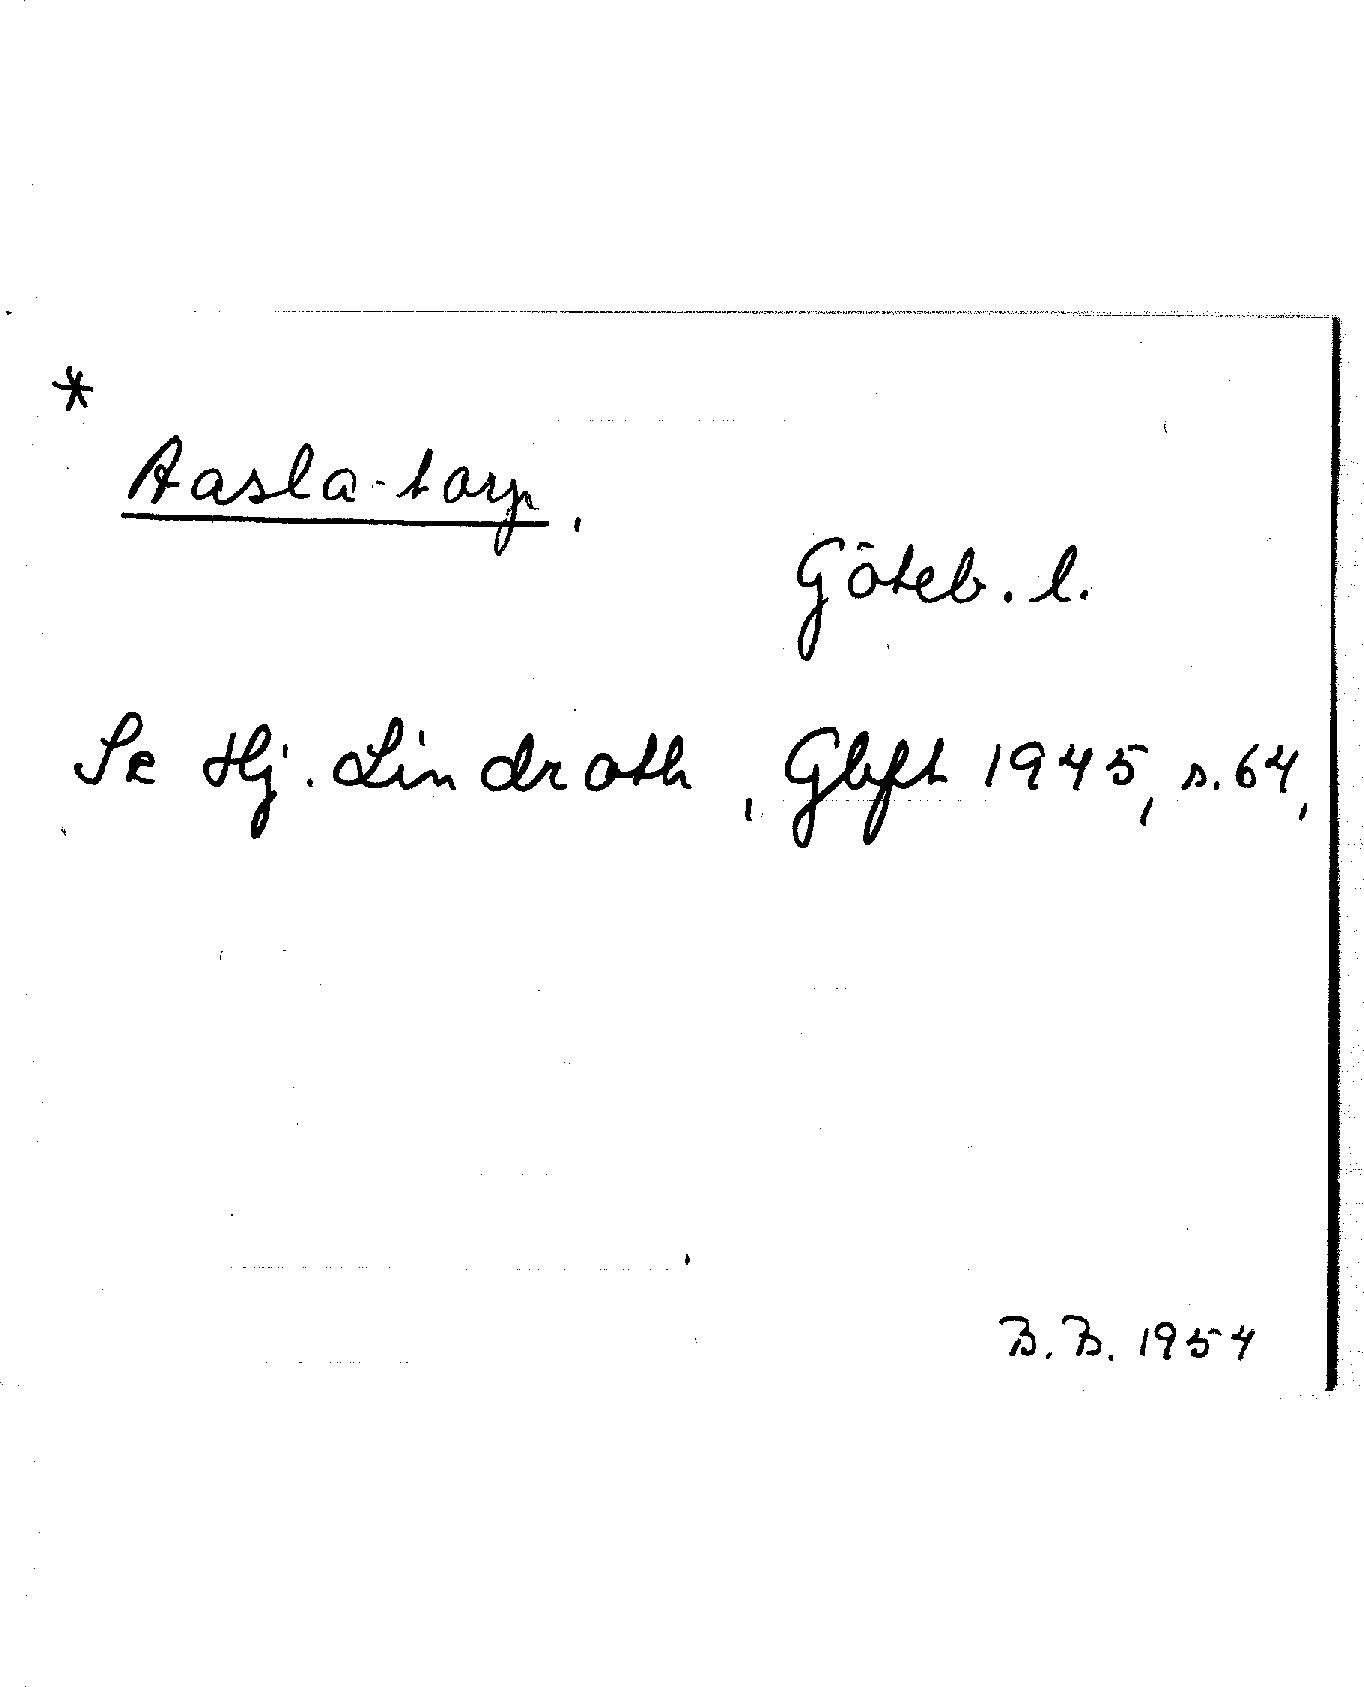 *
Aasla-torp.
Göteb. l.
Se Hj. Lindroth, Gbft 1945, s. 64,
B. B. 1954